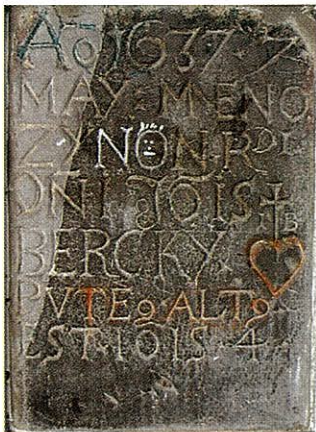 Aō 1637 · 7
MAY · MENO
ZY NON · R^DI
DNI JOIS
BERCKY ·
PVTEꝰ ALTꝰ
EST · 101S · 4